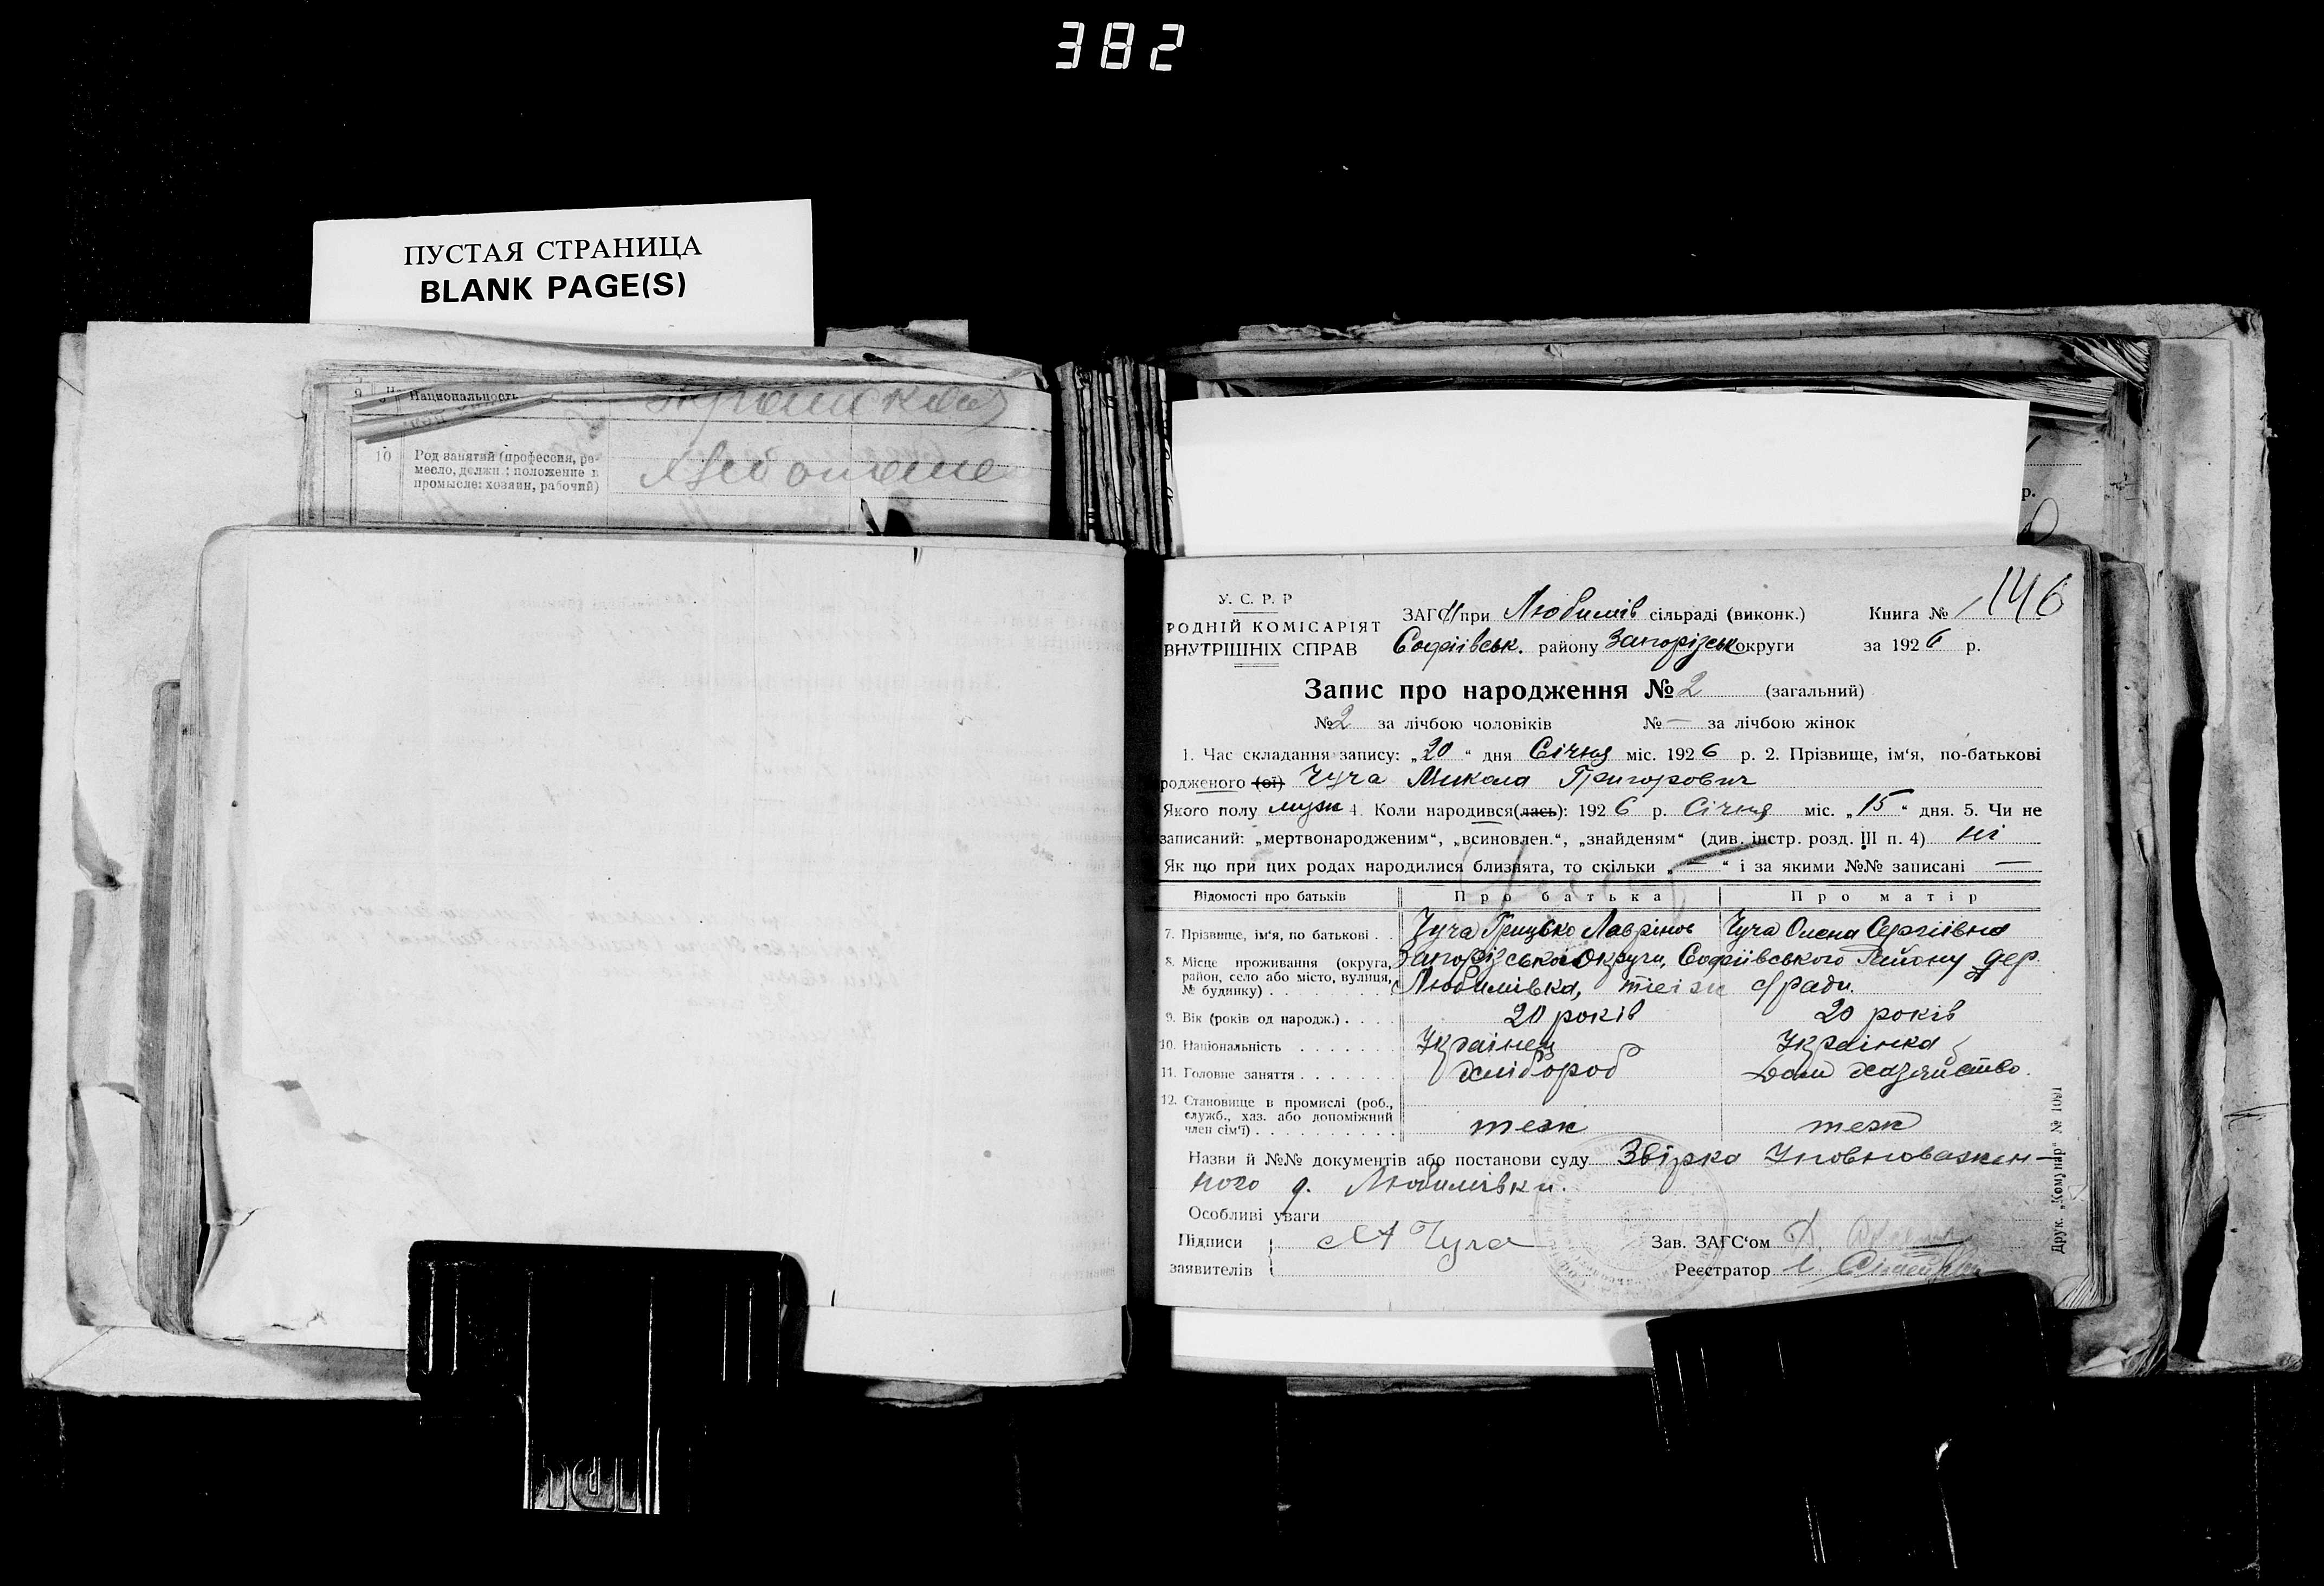 382
ПУСТАЯ СТРАНИЦА
BLANK PAGE(S)
9 Национальность
10 Род занятий (профессия, ре-
месло, должн.: положение в
промысле: хозяин, рабочий)
146
У. С. Р. Р
РОДНІЙ КОМІСАРІЯТ
ВНУТРІШНІХ СПРАВ
ЗАГС при Любимів сільраді (виконк.) Книга № 1
Софіївськ. району Запорізськ округи за 1926 р.
Запис про народження № 2 (загальний)
№ 2 за лічбою чоловіків № — за лічбою жінок
1. Час складання запису: „20“ дня Січня міс. 1926 р. 2. Прізвище, ім‘я, по-батькові
родженого (ої) Чуча Микола Григорович
Якого полу муж 4. Коли народився(лась): 1926 р. Січня міс. „15“ дня. 5. Чи не
записаний: „мертвонародженим“, „всиновлен.“, „знайденям“ (див. інстр. розд. III п. 4) ні
Як що при цих родах народилися близнята, то скільки „—“ і за якими №№ записані —
Відомості про батьків Про батька Про матір
7. Прізвище, ім‘я, по батькові . . Чуча Грицько Лаврінов Чуча Олена Сергіївна
8. Місце проживання (округа, район, село або місто, вулиця, № будинку) . . . Запорізської Округи, Софіївського Району дер.
Любимівка, тиєі ж с/ради.
9. Вік (років од народж.) . . . . 20 років 20 років
10. Національність . . . . . . . Українец Українка
11. Головне заняття . . . . . . . хлібороб Дом хазяйство.
12. Становище в промислі (роб.,
служб., хаз. або допоміжний
член сім‘ї) . . . . . . . . . . теж теж
Назви й №№ документів або постанови суду Звірка Уповноважен-
ного д. Любимівки.
Особливі уваги
Підписи Чуча Зав. ЗАГС‘ом
заявителів Реєстратор
Друк. „Комунар“ № 1091